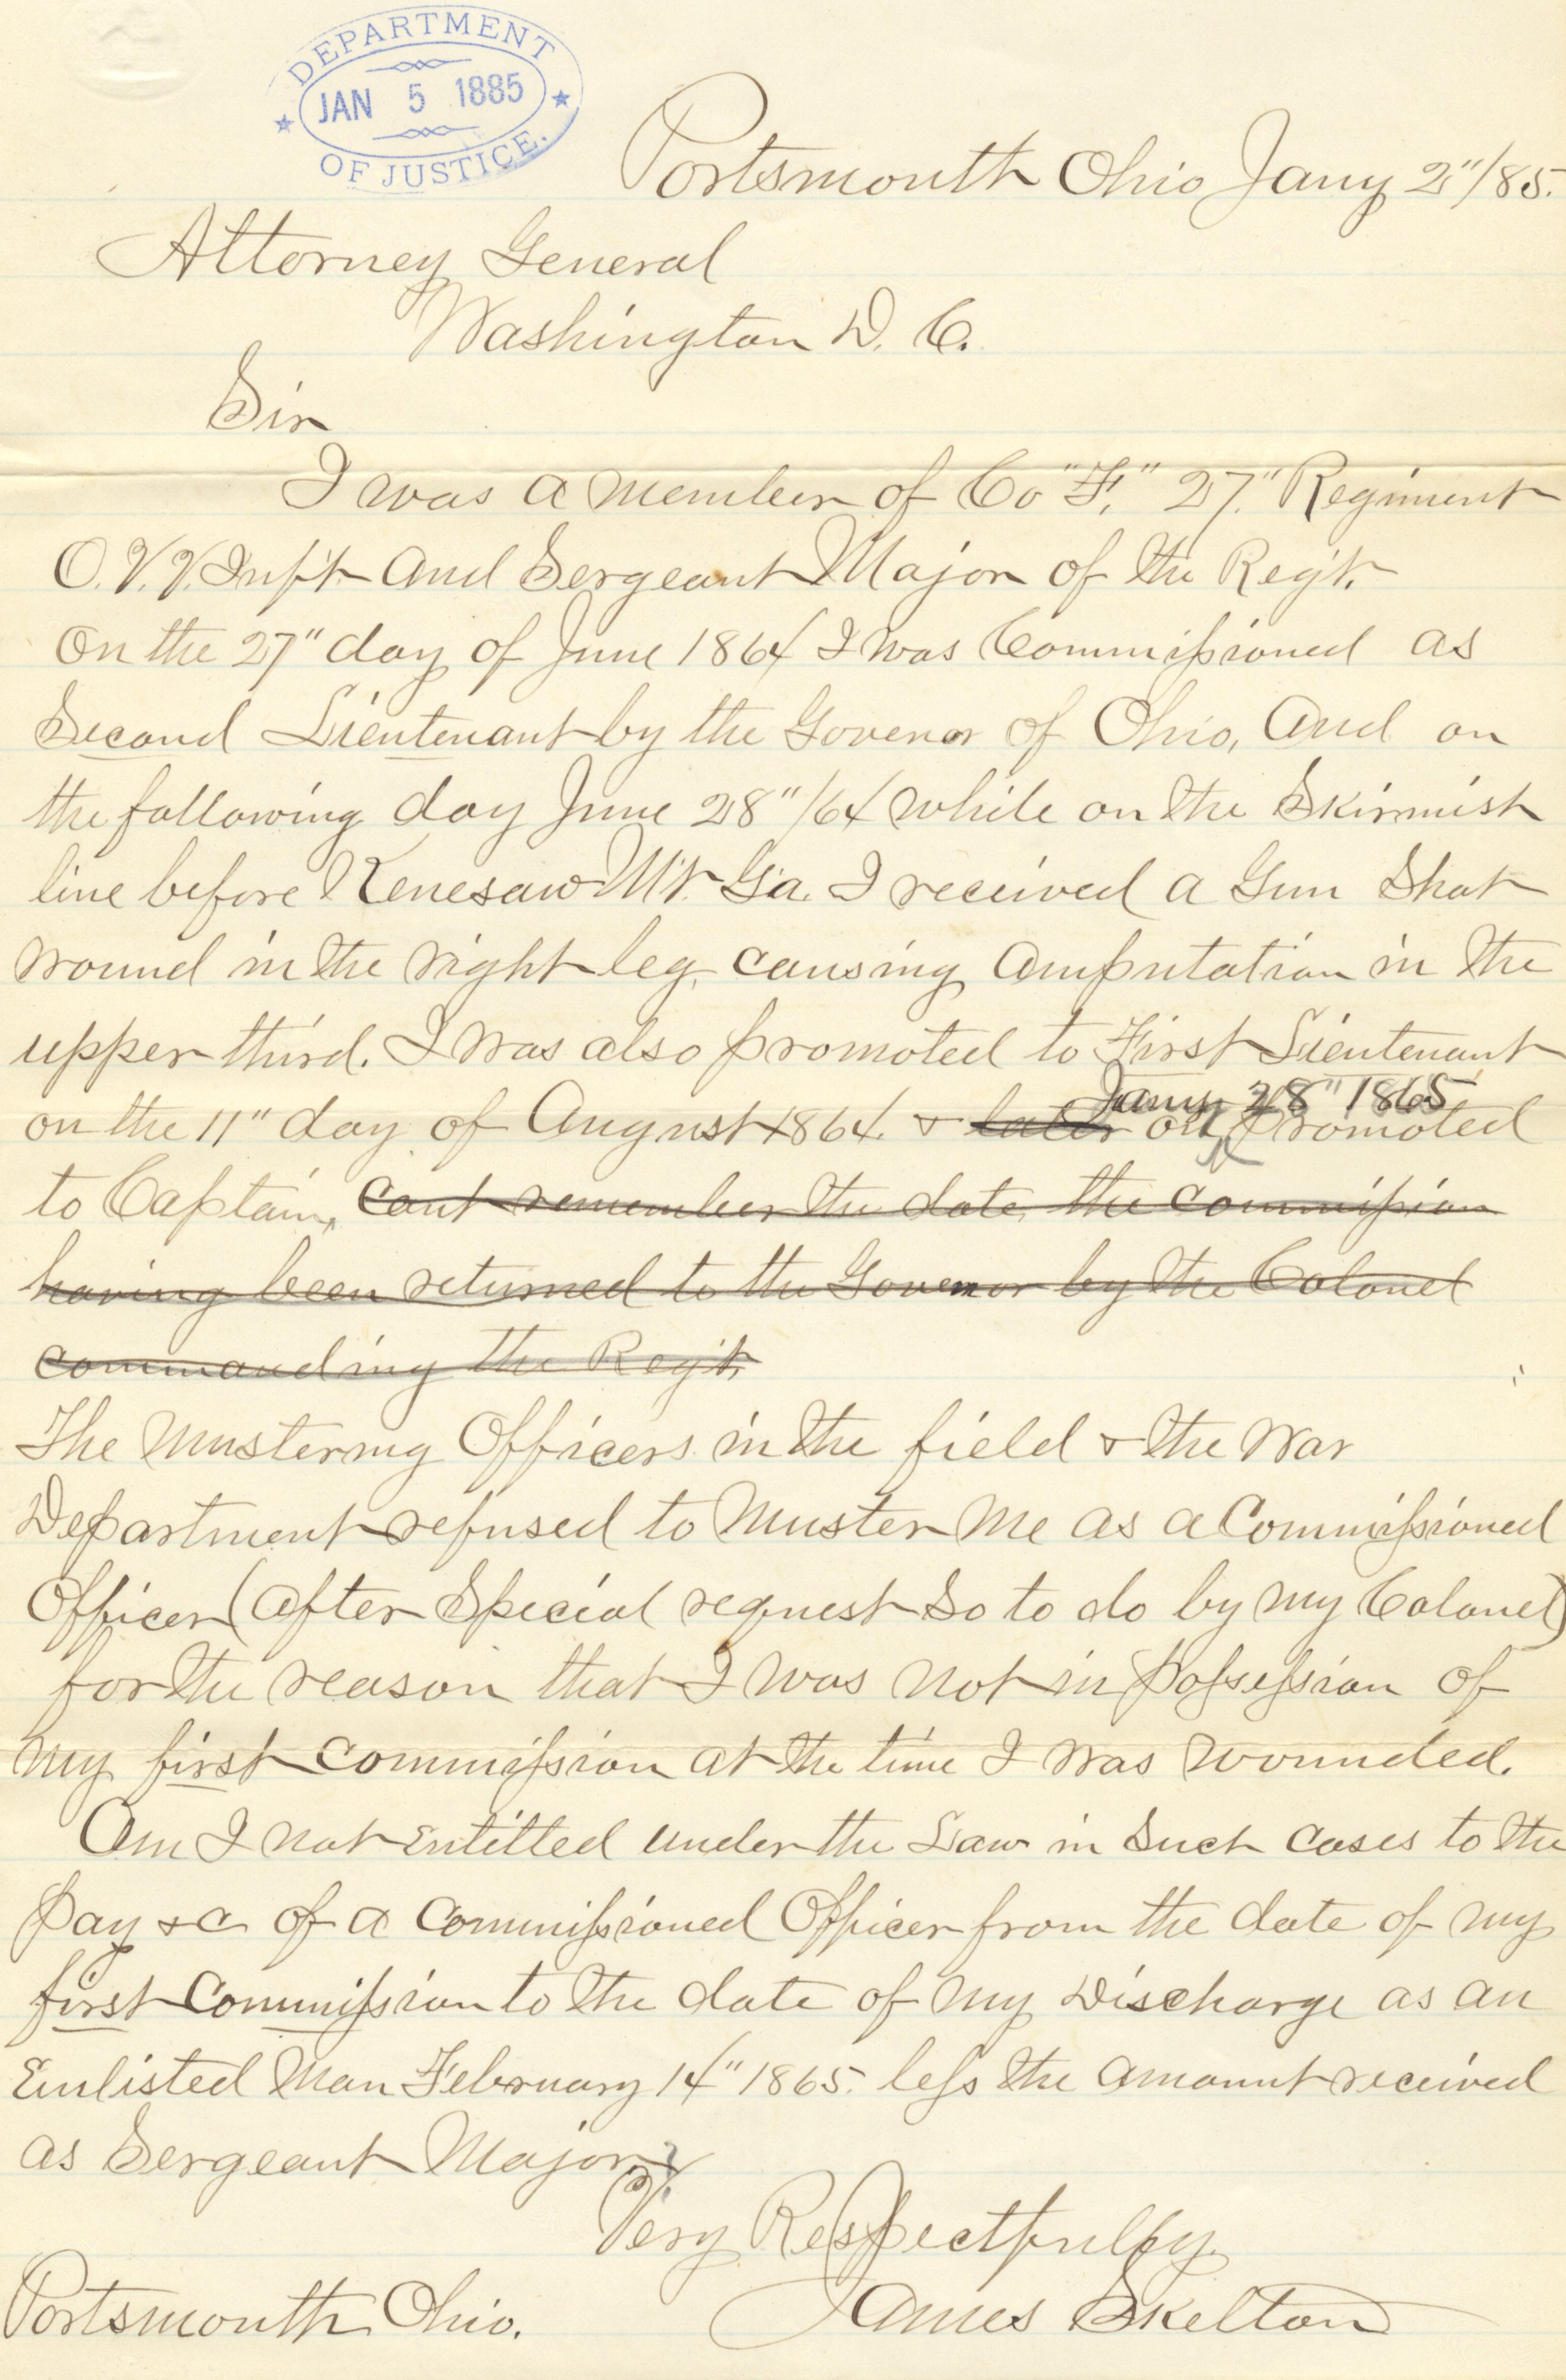 DEPARTMENT
JAN 5 1885
OF JUSTICE.
Portsmouth Ohio Jany 2"/85.
Attorney General
Washington D. C.
Sir
I was a member of Co "F," 27." Regiment
O.V.V. Inf't and Sergeant Major of the Reg't.
On the 27" day of June 1864 I was Commissioned as
Second Lieutenant by the Govenor of Ohio, And on
the following day June 28"/64 while on the Skirmish
line before Kenesaw Mt. Ga. I received a Gun Shot
wound in the right leg, causing Amputation in the
upper third. I was also promoted to First Lieutenant
Jany 28" 1865
on the 11" day of August 1864. & later on promoted
to Captain, cant remember the date, the commission
having been returned to the Govenor by the Colonel
commanding the Reg't.
The Mustering Officers in the field & the War
Department refused to Muster Me as a Commissioned
Officer (after Special request So to do by my Colonel)
for the reason that I was not in possession of
my first commission at the time I was wounded.
Am I not Entitled under the Law in Such cases to the
pay &c of a Commissioned Officer from the date of my
first Commission to the date of my Discharge as an
Enlisted Man February 14" 1865. less the amount received
as Sergeant Major?
Very Respectfully,
James Skelton
Portsmouth Ohio.